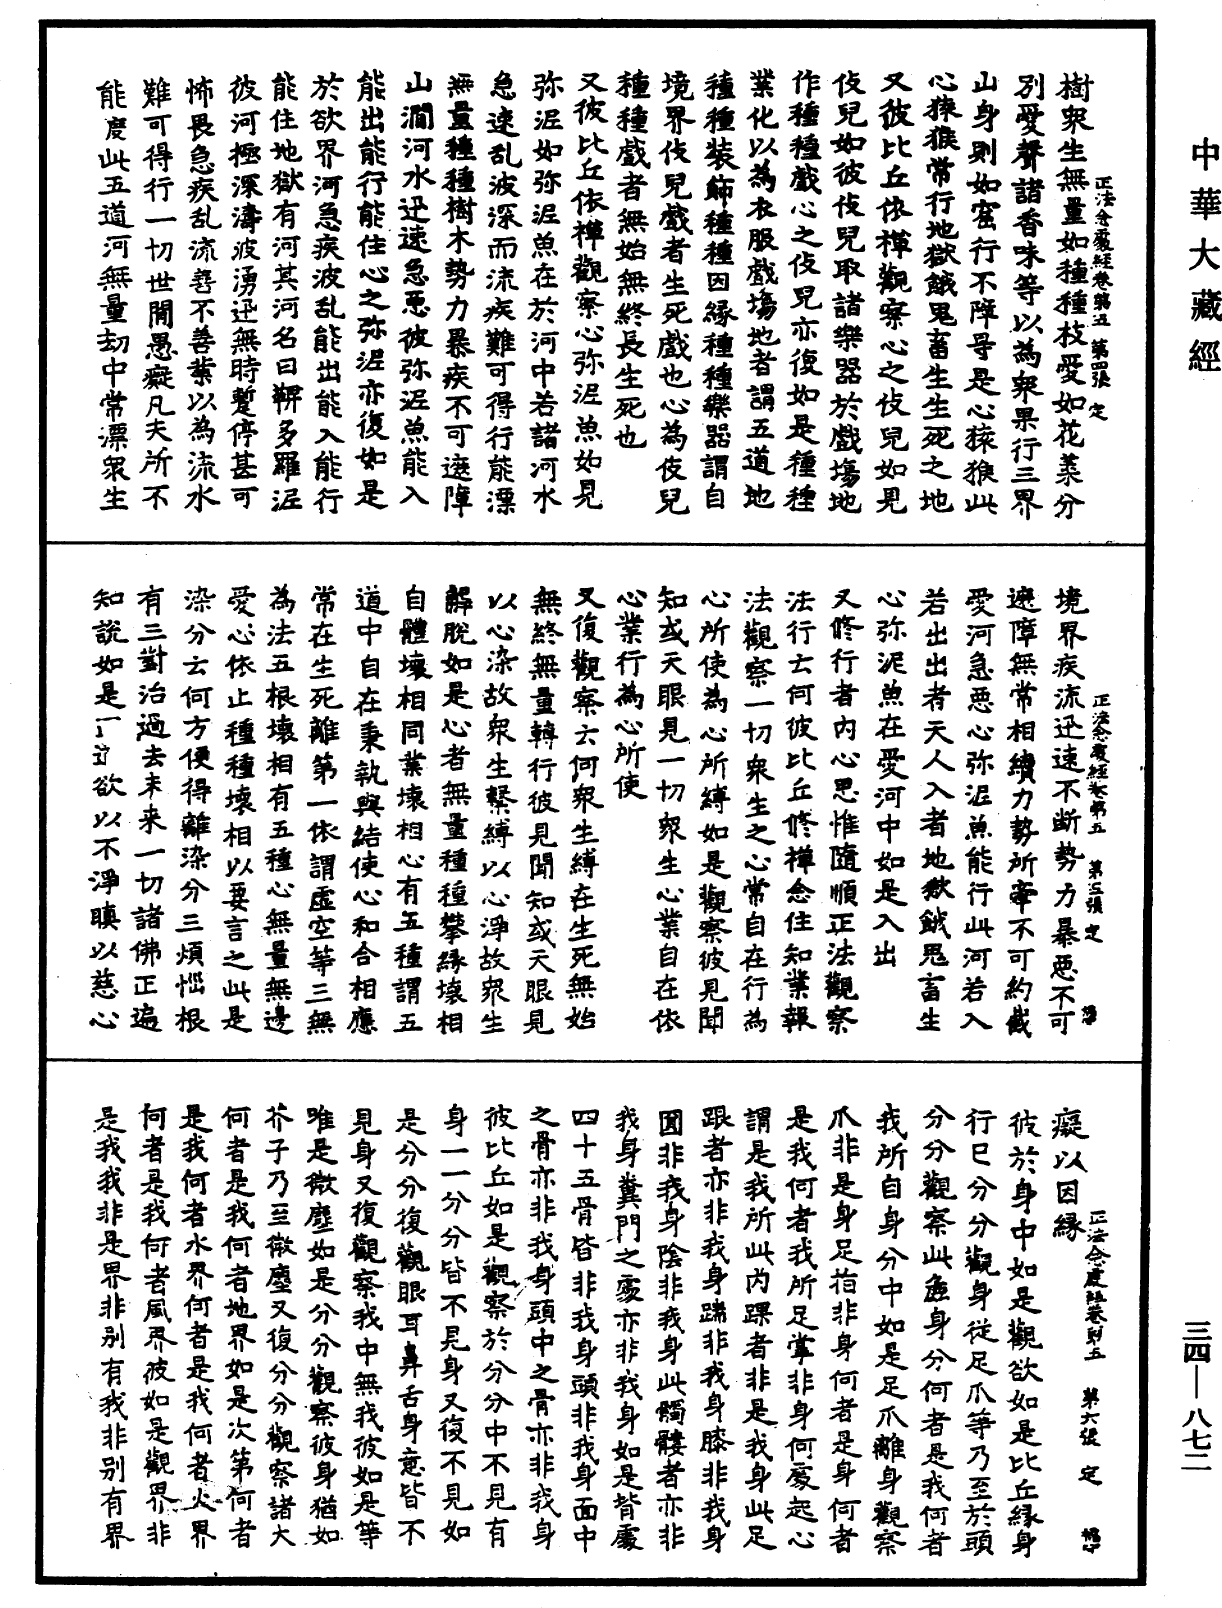 中華大藏經
正法念處經卷第五 第四張 定
樹衆生無量如種種枝愛如花葉分
別愛聲諸香味等以為衆果行三界
山身則如窟行不障导是心猿猴此
心猿猴常行地獄餓鬼畜生生死之地
又彼比丘依禪觀察心之伎兒如見
伎兒如彼伎兒取諸樂器於戲場地
作種種戲心之伎兒亦復如是種種
業化以為衣服戲場地者謂五道地
種種裝飾種種因緣種種樂器謂自
境界伎兒戲者生死戲也心為伎兒
種種戲者無始無終長生死也
又彼比丘依禪觀察心弥泥魚如見
弥泥如弥泥魚在於河中若諸河水
急速乱波深而流疾難可得行能漂
無量種種樹木勢力暴疾不可遮障
山澗河水迅速急惡彼弥泥魚能入
能出能行能住心之弥泥亦復如是
於欲界河急疾波乱能出能入能行
能住地獄有河其河名曰鞞多羅泥
彼河極深濤波湧迅無時暫停甚可
怖畏急疾乱流善不善業以為流水
難可得行一切世間愚癡凡夫所不
能度此五道河無量劫中常漂衆生
正法念處經卷第五 第五張 定
境界疾流迅速不断勢力暴惡不可
遮障無常相續力勢所牽不可約截
愛河急惡心弥泥魚能行此河若入
若出出者天人入者地獄餓鬼畜生
心弥泥魚在愛河中如是入出
又修行者內心思惟隨順正法觀察
法行云何彼比丘修禪念住知業報
法觀察一切衆生之心常自在行為
心所使為心所縛如是觀察彼見聞
知或天眼見一切衆生心業自在依
心業行為心所使
又復觀察云何衆生縛在生死無始
無終無量轉行彼見聞知或天眼見
以心染故衆生繫縛以心淨故衆生
解脫如是心者無量種種攀緣壞相
自體壞相同業壞相心有五種謂五
道中自在秉執與結使心和合相應
常在生死離第一依謂虛空等三無
為法五根壞相有五種心無量無邊
愛心依止種種壞相以要言之此是
染分云何方便得離染分三煩惱根
有三對治過去未來一切諸佛正遍
知說如是 欲以不淨瞋以慈心
正法念處經卷第五 第六張 定
癡以因緣
彼於身中如是觀欲如是比丘緣身
行已分分觀身從足爪等乃至於頭
分分觀察此色身分何者是我何者
我所自身分中如是足爪離身觀察
爪非是身足指非身何者是身何者
是我何者我所足掌非身何處起心
謂是我所此內踝者非是我身此足
跟者亦非我身踹非我身膝非我身
圊非我身陰非我身此髑髏者亦非
我身糞門之處亦非我身如是背處
四十五骨皆非我身頭非我身面中
之骨亦非我身頭中之骨亦非我身
彼比丘如是觀察於分分中不見有
身一一分分皆不見身又復不見如
是分分復觀眼耳鼻舌身意皆不
見身又復觀察我中無我彼如是等
唯是微塵如是分分觀察彼身猶如
芥子乃至微塵又復分分觀察諸大
何者是我何者地界如是次第何者
是我何者水界何者是我何者火界
何者是我何者風界彼如是觀界非
是我我非是界非別有我非別有界
三四—八七二